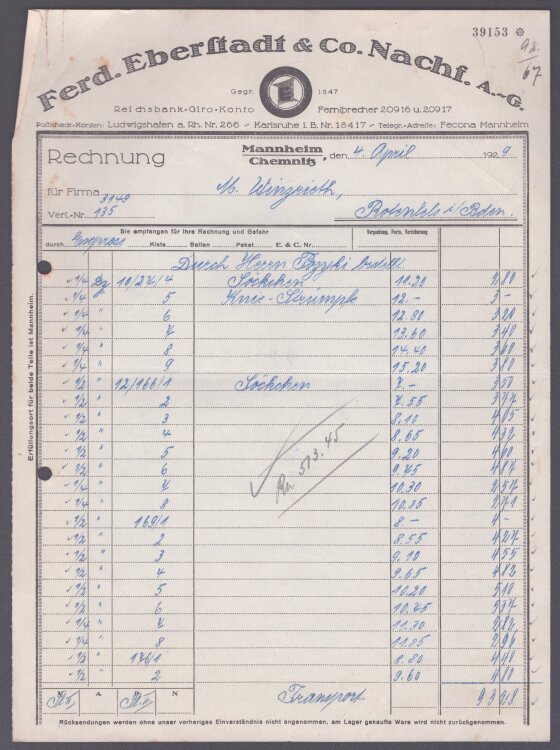 39153 ✻
98/67
Ferd. Eberstadt & Co. Nachf. A.-G.
Gegr. 1847
Reichsbank-Giro-Konto Fernsprecher 20916 u. 20917
Postscheck-Konten: Ludwigshafen a. Rh. Nr. 266 – Karlsruhe i. B. Nr. 18417 – Telegr.-Adresse: Fecona Mannheim
Rechnung Mannheim
Chemnitz, den 4. April 1929
für Firma 3140 M. Winzrieth,
Verl.-Nr. 135 Rotenfels i/Baden.
Sie empfangen für Ihre Rechnung und Gefahr Verpackung, Porto, Versicherung
durch Express Kiste Ballen Paket E. & C. Nr.
Durch Herrn
1/4 Dz 10/24/4 Söckchen 11.20 2 80
1/4 " 5 Knie-Strümpfe 12.- 3 -
1/4 " 6 12.80 3 20
1/4 " 7 13.60 3 40
1/4 " 8 14.40 3 60
1/4 " 9 15.20 3 80
1/2 " 12/166/1 Söckchen 7.- 3 50
1/2 " 2 7.55 3 77
1/2 " 3 8.10 4 05
1/2 " 4 8.65 4 32
1/2 " 5 9.20 4 60
1/2 " 6 9.75 4 87
1/4 " 7 10.30 2 57
1/4 " 8 10.85 2 71
1/2 " 169/1 8.- 4 -
1/2 " 2 8.55 4 27
1/2 " 3 9.10 4 55
1/2 " 4 9.65 4 82
1/2 " 5 10.20 5 10
1/2 " 6 10.75 5 37
1/4 " 7 11.30 2 82
1/4 " 8 11.85 2 96
1/2 " 176/1 8.80 4 40
1/2 " 2 9.60 4 80
513.45
A N
Transport. 93 28
Rücksendungen werden ohne unser vorheriges Einverständnis nicht angenommen, am Lager gekaufte Ware wird nicht zurückgenommen.
Erfüllungsort für beide Teile ist Mannheim.